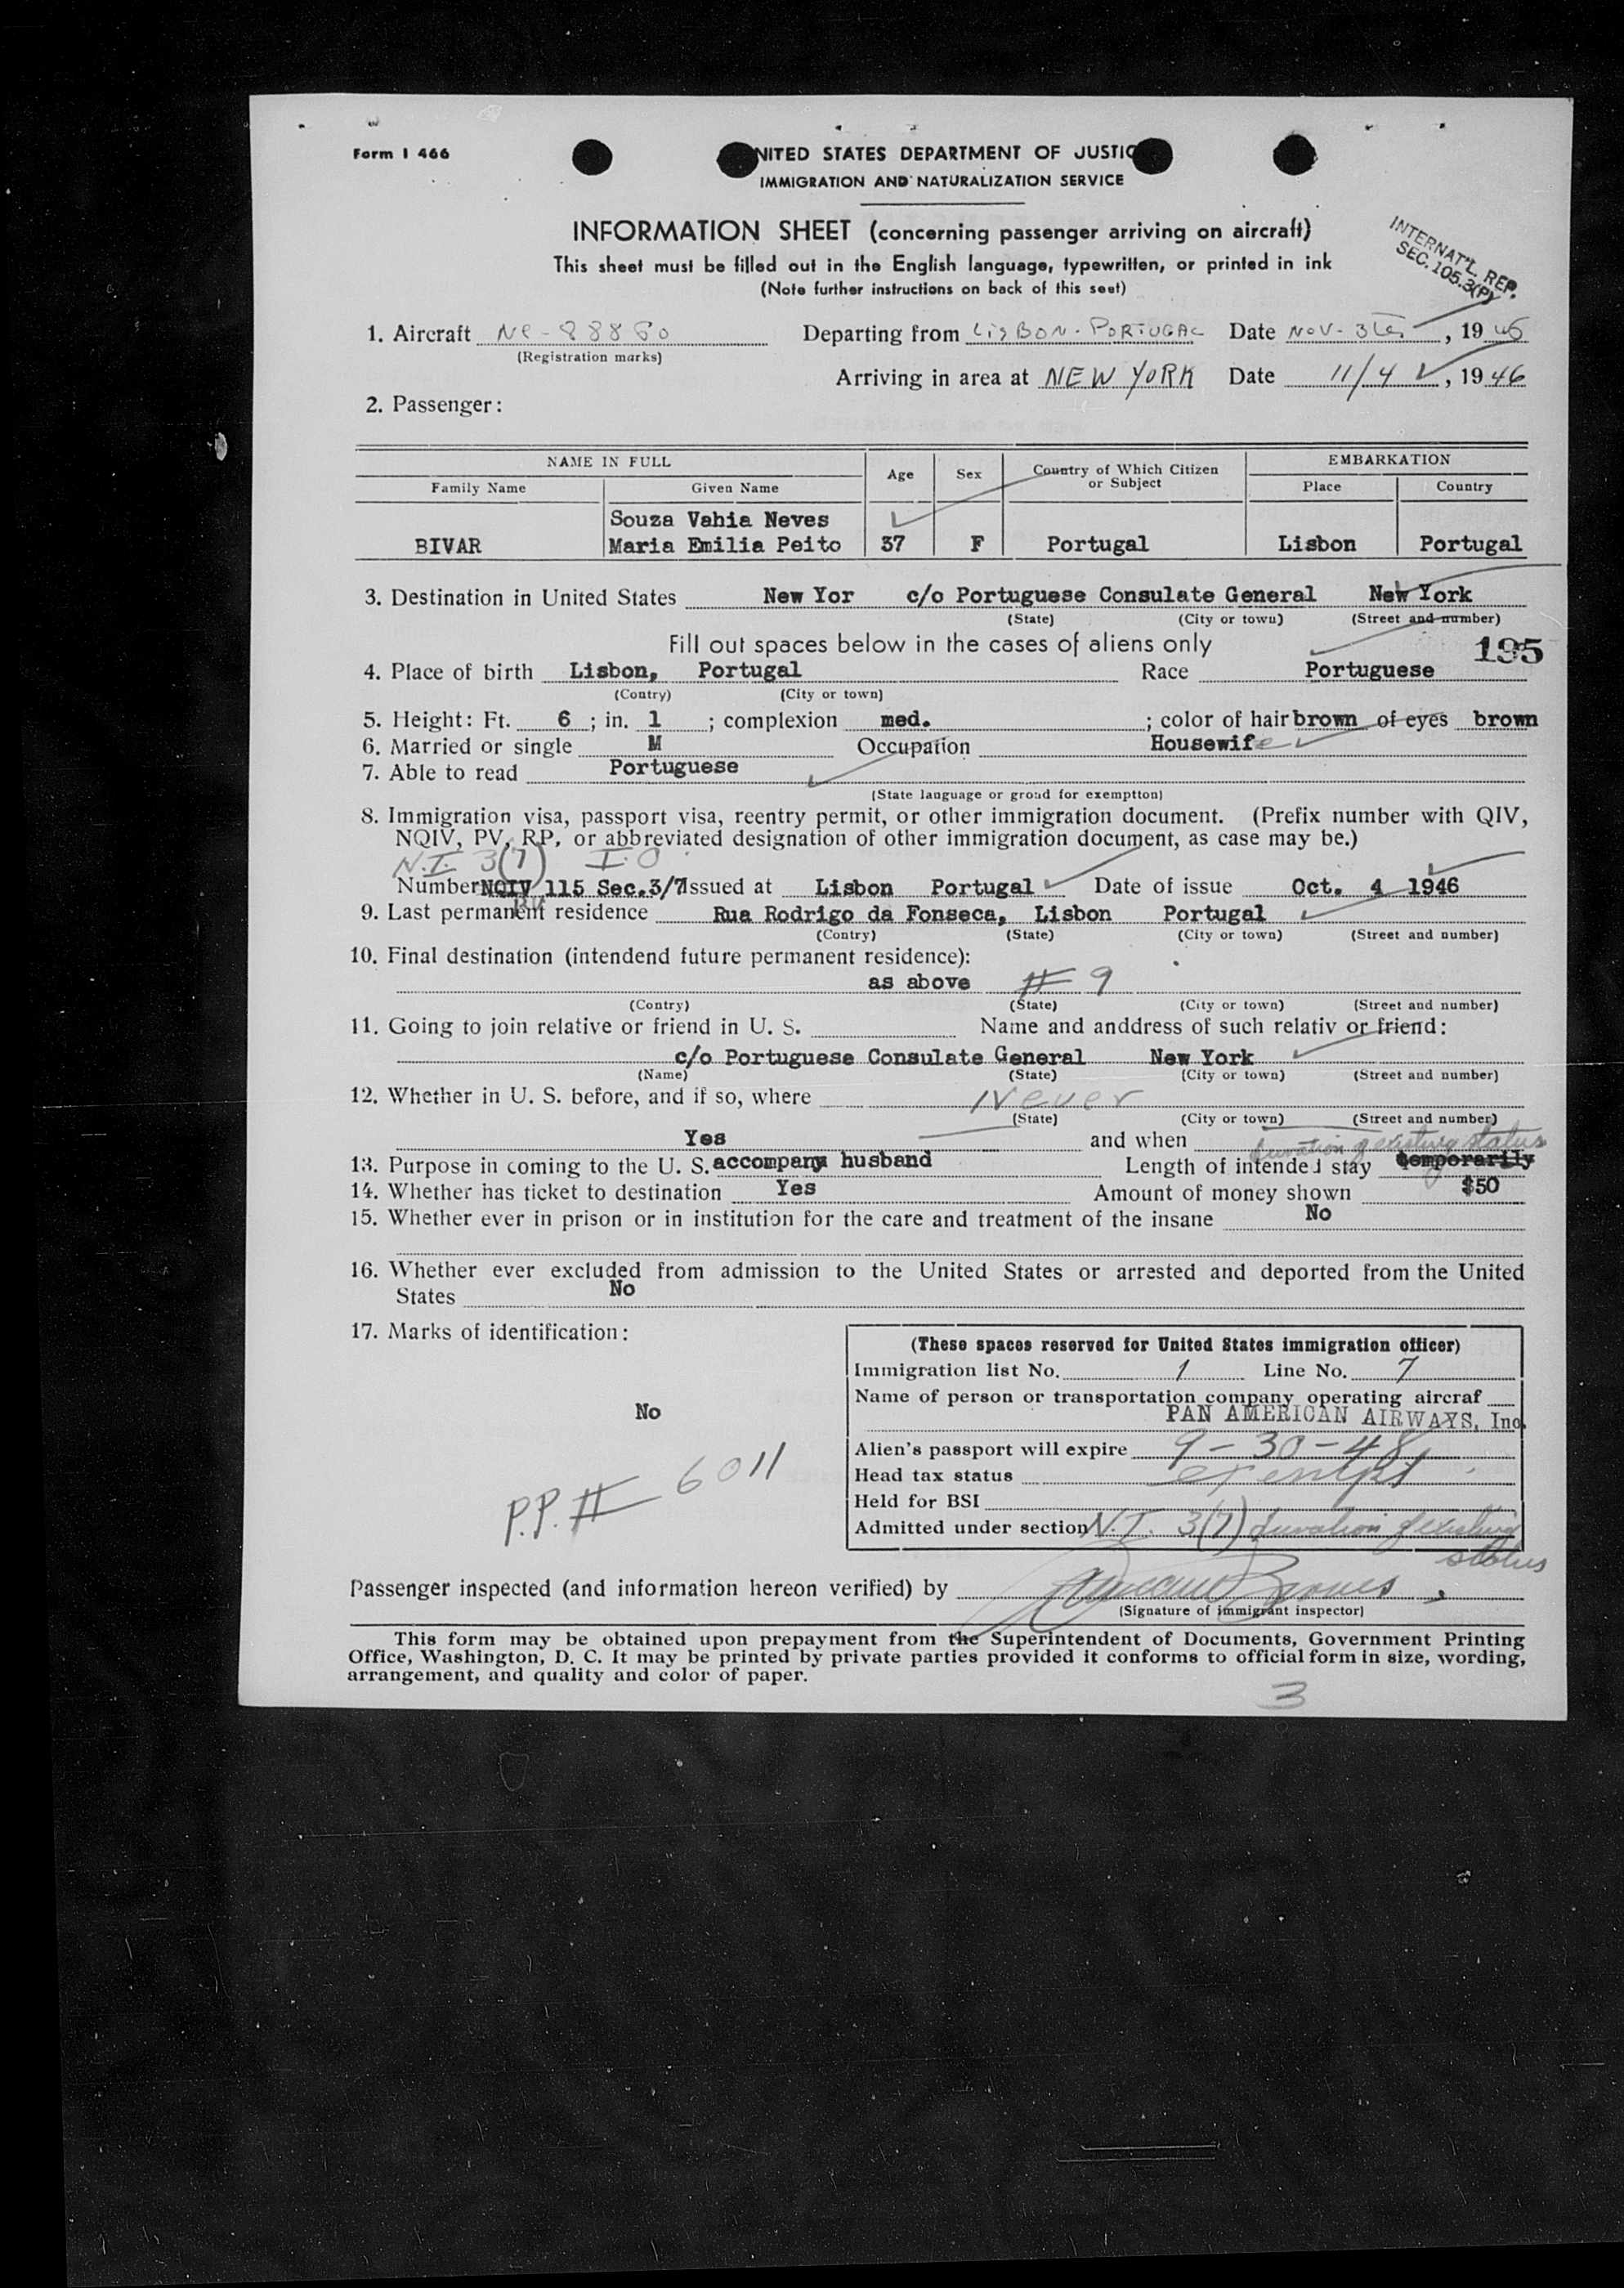 Form I 466
NITED STATES DEPARTMENT OF JUSTIC
IMMIGRATION AND NATURALIZATION SERVICE
INFORMATION SHEET (concerning passenger arriving on aircraft)
This sheet must be filled out in the English language, typewritten, or printed in ink
(Note further instructions on back of this seet)
INTERNAT'L. REP.
SEC. 105.3(P)
1. Aircraft NC-88860 Departing from LISBON-PORTUGAL Date NOV-3 , 1946
(Registration marks)
Arriving in area at NEW YORK Date 11/4 , 1946
2. Passenger:
NAME IN FULL Age Sex Country of Which Citizen or Subject EMBARKATION
Family Name Given Name Place Country
Souza Vahia Neves
BIVAR Maria Emilia Peito 37 F Portugal Lisbon Portugal
3. Destination in United States New Yor c/o Portuguese Consulate General New York
(State) (City or towu) (Street and number)
Fill out spaces below in the cases of aliens only 195
4. Place of birth Lisbon, Portugal Race Portuguese
(Contry) (City or town)
5. Height: Ft. 6 ; in. 1 ; complexion med. ; color of hair brown of eyes brown
6. Married or single M Occupation Housewife
7. Able to read Portuguese
(State language or groud for exemptton)
8. Immigration visa, passport visa, reentry permit, or other immigration document. (Prefix number with QIV,
NQIV, PV, RP, or abbreviated designation of other immigration document, as case may be.)
N.I. 3(7) I.O
Number NQIV 115 Sec.3/7 Issued at Lisbon Portugal Date of issue Oct. 4 1946
9. Last permanent residence Rua Rodrigo da Fonseca, Lisbon Portugal
(Contry) (State) (City or town) (Street and number)
10. Final destination (intendend future permanent residence):
as above # 9
(Contry) (State) (City or town) (Street and number)
11. Going to join relative or friend in U. S. Name and anddress of such relativ or friend:
c/o Portuguese Consulate General New York
(Name) (State) (City or town) (Street and number)
12. Whether in U. S. before, and if so, where Never
(State) (City or town) (Street and number)
Yes and when
duration of existing status
13. Purpose in coming to the U. S. accompany husband Length of intended stay temporarily
14. Whether has ticket to destination Yes Amount of money shown $50
15. Whether ever in prison or in institution for the care and treatment of the insane No
16. Whether ever excluded from admission to the United States or arrested and deported from the United
States No
17. Marks of identification:
No
P.P. # 6011
(These spaces reserved for United States immigration officer)
Immigration list No. 1 Line No. 7
Name of person or transportation company operating aircraf
PAN AMERICAN AIRWAYS, Inc.
Alien's passport will expire 9-30-48
Head tax status exempt
Held for BSI
Admitted under section N.I. 3(7) duration of existing
status
Passenger inspected (and information hereon verified) by
(Signature of immigrant inspector)
This form may be obtained upon prepayment from the Superintendent of Documents, Government Printing
Office, Washington, D. C. It may be printed by private parties provided it conforms to official form in size, wording,
arrangement, and quality and color of paper.
3